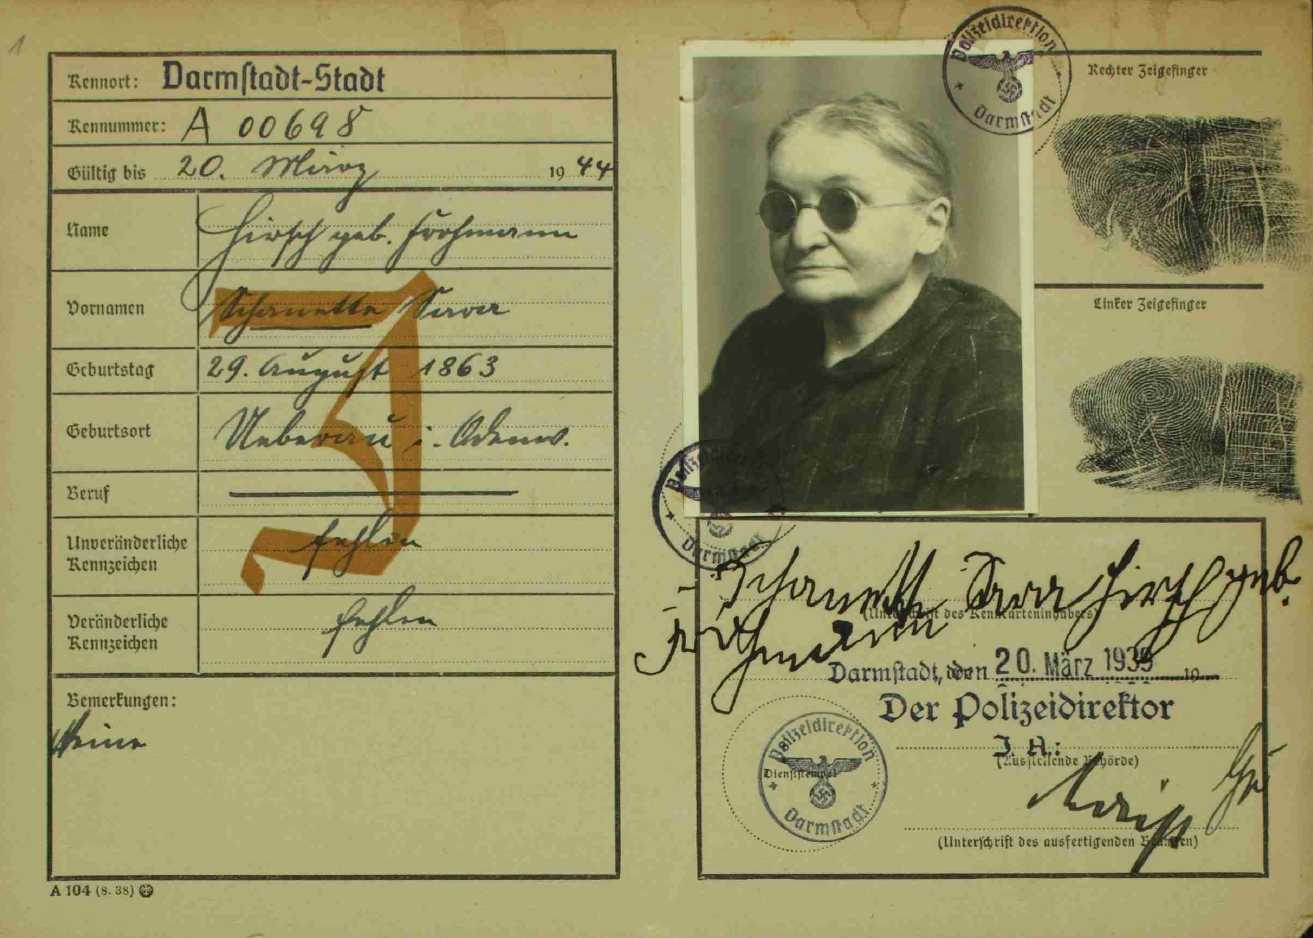 1
Kennort: Darmstadt-Stadt
Kennummer: A 00698
Gültig bis 20. März 1944
Name Hirsch geb. Frohmann
Vornamen Schanette Sara
Geburtstag 29. August 1863
Geburtsort Ueberau i. Odenw.
Beruf
Unveränderliche fehlen
Kennzeichen
Veränderliche fehlen
Kennzeichen
Bemerkungen:
Keine
J
A 104 (8. 38)
Polizeidirektion
Darmstadt
Rechter Zeigefinger
Linker Zeigefinger
Polizeidirektion
Darmstadt
Schanett Sara Hirsch geb.
(Unterschrift des Kennkarteninhabers)
Frohmann
Darmstadt, den 20. März 1939 19
Der Polizeidirektor
J. A.:
(Ausstellende Behörde)
Polizeidirektion
Dienststempel
Darmstadt
(Unterschrift des ausfertigenden Beamten)